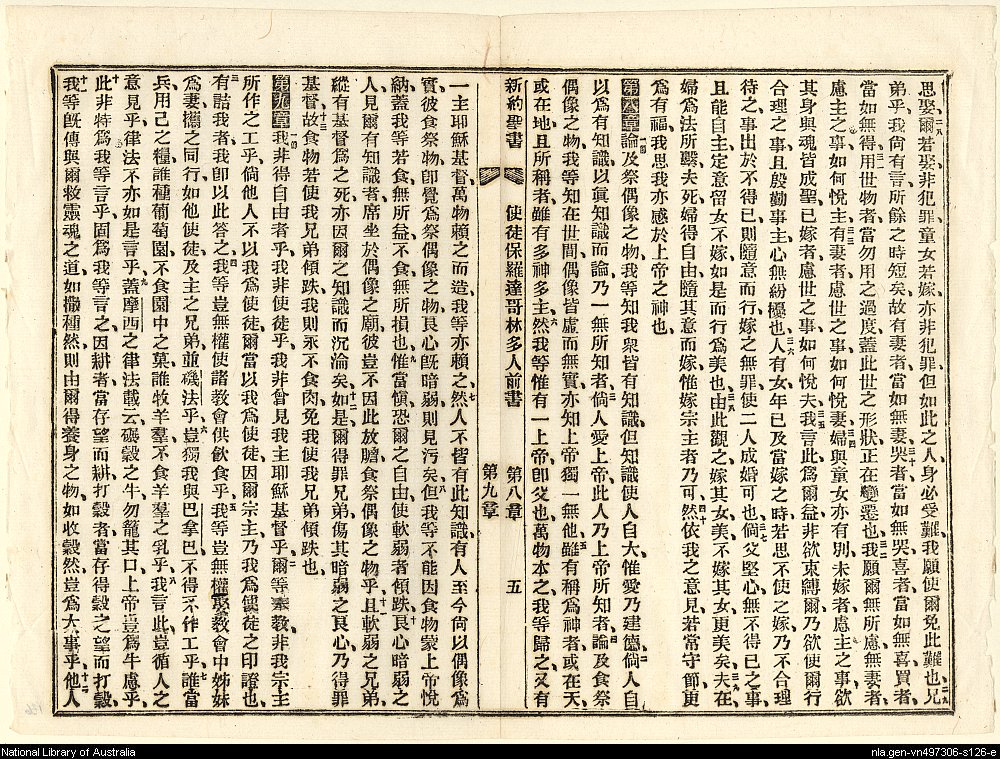 思娶爾若娶非犯罪童女若嫁亦非犯罪但如此之人身必受難我願使爾免此難也兄
弟乎我尙有言所餘之時短矣故有妻者當如無妻哭者當如無哭喜者當如無喜買者
當如無得用世物者當勿用之過度蓋此世之形狀正在變遷也我願爾無所慮無妻者
慮主之事如何悅主有妻者慮世之事如何悅妻婦與童女亦有別未嫁者慮主之事欲
其身與魂皆成聖已嫁者慮世之事如何悅夫我言此爲爾益非欲束縛爾乃欲使爾行
合理之事且殷勤事主心無紛擾也人有女年已及當嫁之時若思不使之嫁乃不合理
待之事出於不得已則隨意而行嫁之無罪使二人成婚可也倘父堅心無不得已之事
且能自主定意留女不嫁如是而行爲美也由此觀之嫁其女美不嫁其女更美矣夫在
婦爲法所繫夫死婦得自由隨其意而嫁惟嫁宗主者乃可然依我之意見若常守節更
爲有福我思我亦感於上帝之神也
第八章論及祭偶像之物我等知我衆皆有知識但知識使人自大惟愛乃建德倘人自
以爲有知識以眞知識而論乃一無所知者倘人愛上帝此人乃上帝所知者論及食祭
偶像之物我等知在世間偶像皆虛而無實亦知上帝獨一無他雖有稱爲神者或在天
或在地且所稱者雖有多神多主然我等惟有一上帝卽父也萬物本之我等歸之又有
新約聖書 使徒保羅達哥林多人前書 第八章 第九章 五
一主耶穌基督萬物賴之而造我等亦賴之然人不皆有此知識有人至今尙以偶像爲
實彼食祭物卽覺爲祭偶像之物良心旣暗弱則見污矣但我等不能因食物蒙上帝悅
納蓋我等若食無所益不食無所損也惟當愼恐爾之自由使軟弱者傾跌良心暗弱之
人見爾有知識者席坐於偶像之廟彼豈不因此放膽食祭偶像之物乎且軟弱之兄弟
縱有基督爲之死亦因爾之知識而沉淪矣如是爾得罪兄弟傷其暗弱之良心乃得罪
基督故食物若使我兄弟傾跌我則永不食肉免使我兄弟傾跌也
第九章我非得自由者乎我非使徒乎我非曾見我主耶穌基督乎爾等素敎非我宗主
所作之工乎倘他人不以我爲使徒爾當以我爲使徒因爾宗主乃我爲使徒之印證也
有詰我者我卽以此答之我等豈無權使諸敎會供飮食乎我等豈無權娶敎會中姊妹
爲妻攜之同行如他使徒及主之兄弟並磯法乎豈獨我與巴拿巴不得不作工乎誰當
兵用己之糧誰種葡萄園不食園中之菓誰牧羊羣不食羊羣之乳乎我言此豈循人之
意見乎律法不亦如是言乎蓋摩西之律法載云碾穀之牛勿籠其口上帝豈爲牛慮乎
此非特爲我等言乎固爲我等言之因耕者當存望而耕打穀者當存得穀之望而打穀
我等旣傳與爾救靈魂之道如撒種然則由爾得養身之物如收穀然豈爲大事乎他人
National Library of Australia
nla.gen-vn497306-s126-e